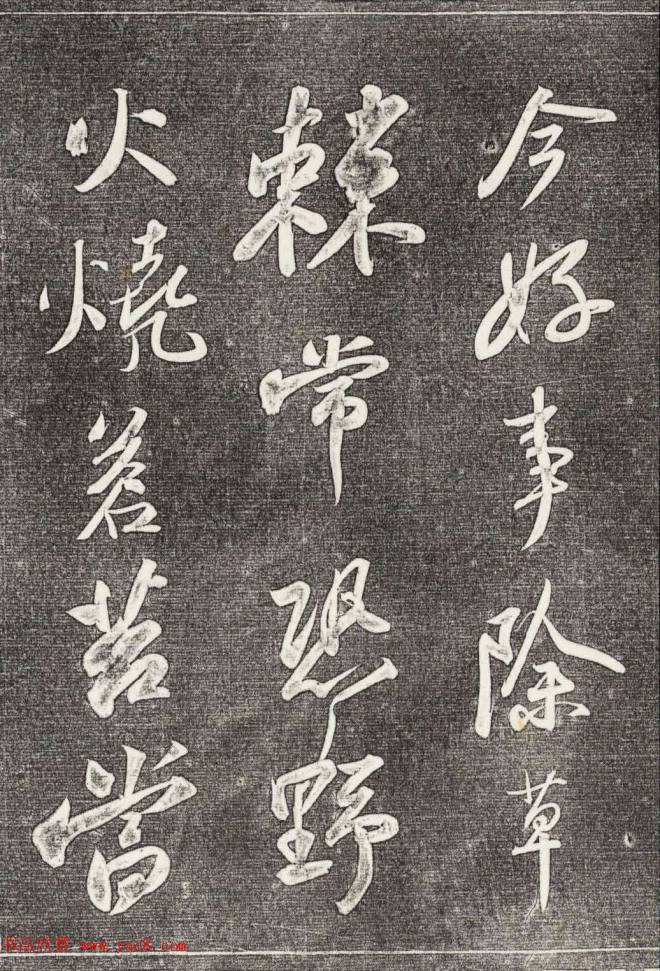 今好事除草
棘常恐野
火燒蒼苔當
书法欣赏 www.yac8.com